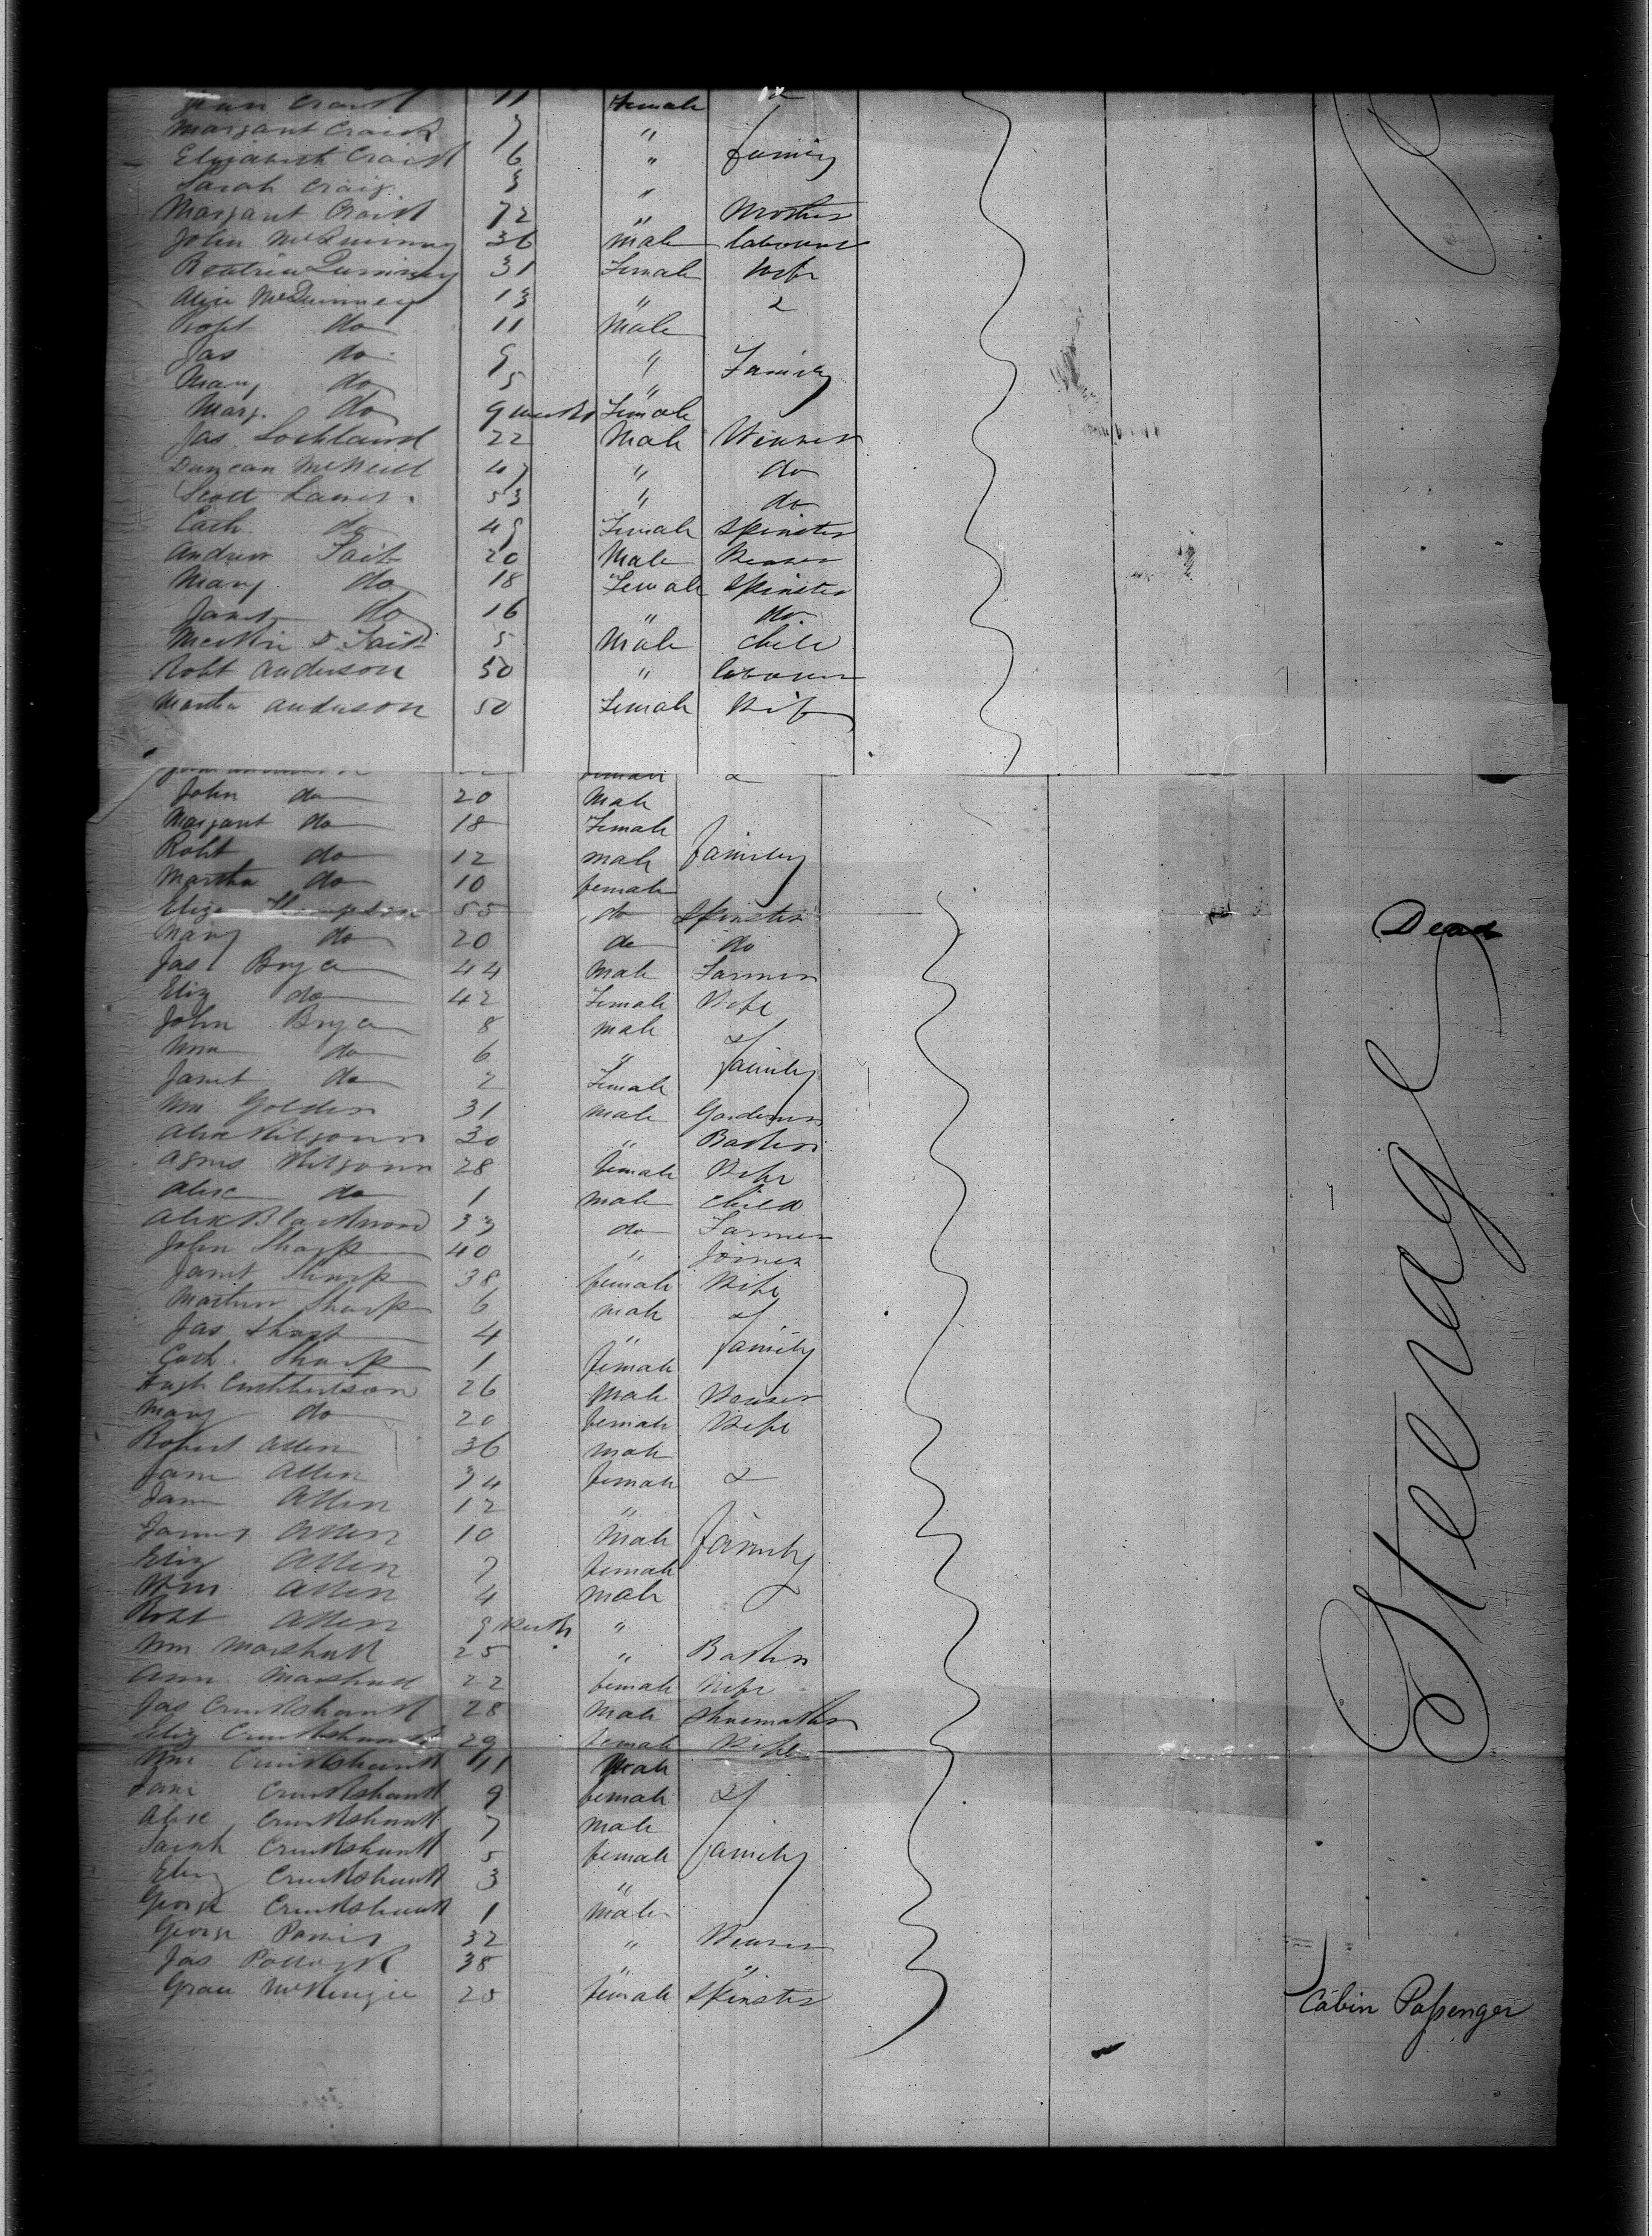 Jean Craick 11 Female &
Margaret Craick 7 "
Elizabeth Craick 6 " family
Sarah Craig 3 "
Margaret Craick 72 " Mother
John McQuinney 36 male labourer
Beatrice Quinney 31 Female Wife
Alice McQuinney 13 " &
Robt do 11 Male
Jas do 9 " Family
Mary do 5 "
Marg. do 9 weeks Female
Jas Lockland 22 Male Weaver
Duncan McNeill 47 " do
Scott 53 " do
Cath. do 49 Female Spinster
Andrew Tait 20 Male Weaver
Mary do 18 Female Spinster
Janet do 16 " do.
Tait 5 Male Child
Robt Anderson 50 " labourer
Martha Anderson 50 Female Wife
John do 20 Male
Margaret do 18 Female
Robt do 12 male family
Martha do 10 female
Eliza Thompson 55 do Spinster Dead
Mary do 20 do do
Jas Bryce 44 Male Farmer
Eliz do 42 Female Wife
John Bryce 8 male &
Wm do 6 " family
Janet do 2 Female
Wm Golden 31 male Gardener
Alex Kilgour 30 " Baker
Agnes Kilgour 28 female Wife
Alex do 1 male Child
Alex Blackwood 33 do Farmer
John Sharp 40 " Joiner
Janet Sharp 38 female Wife
Matthew Sharp 6 male &
Jas Sharp 4 " family
Cath. Sharp 1 female
Hugh Cuthbertson 26 Male Weaver
Mary do 20 female Wife
Robert Allen 36 male
Jane Allen 34 female &
Jane Allen 12 "
James Allen 10 Male family
Eliz Allen 7 female
Wm Allen 4 male
Robt Allen 9 weeks "
Wm Marshall 25 " Baker
Ann Marshall 22 female Wife
Jas Cruikshank 28 Male Shoemaker
Eliz Cruikshank 29 female Wife
Wm Cruikshank 11 Male
Jane Cruikshank 9 female &
Alex Cruikshank 7 male
Sarah Cruikshank 5 female family
Eliz Cruikshank 3 "
George Cruikshank 1 Male
George 32 " Weaver
Jas Pollock 38 " "
Grace McKenzie 25 female Spinster Cabin Passenger
Steerage